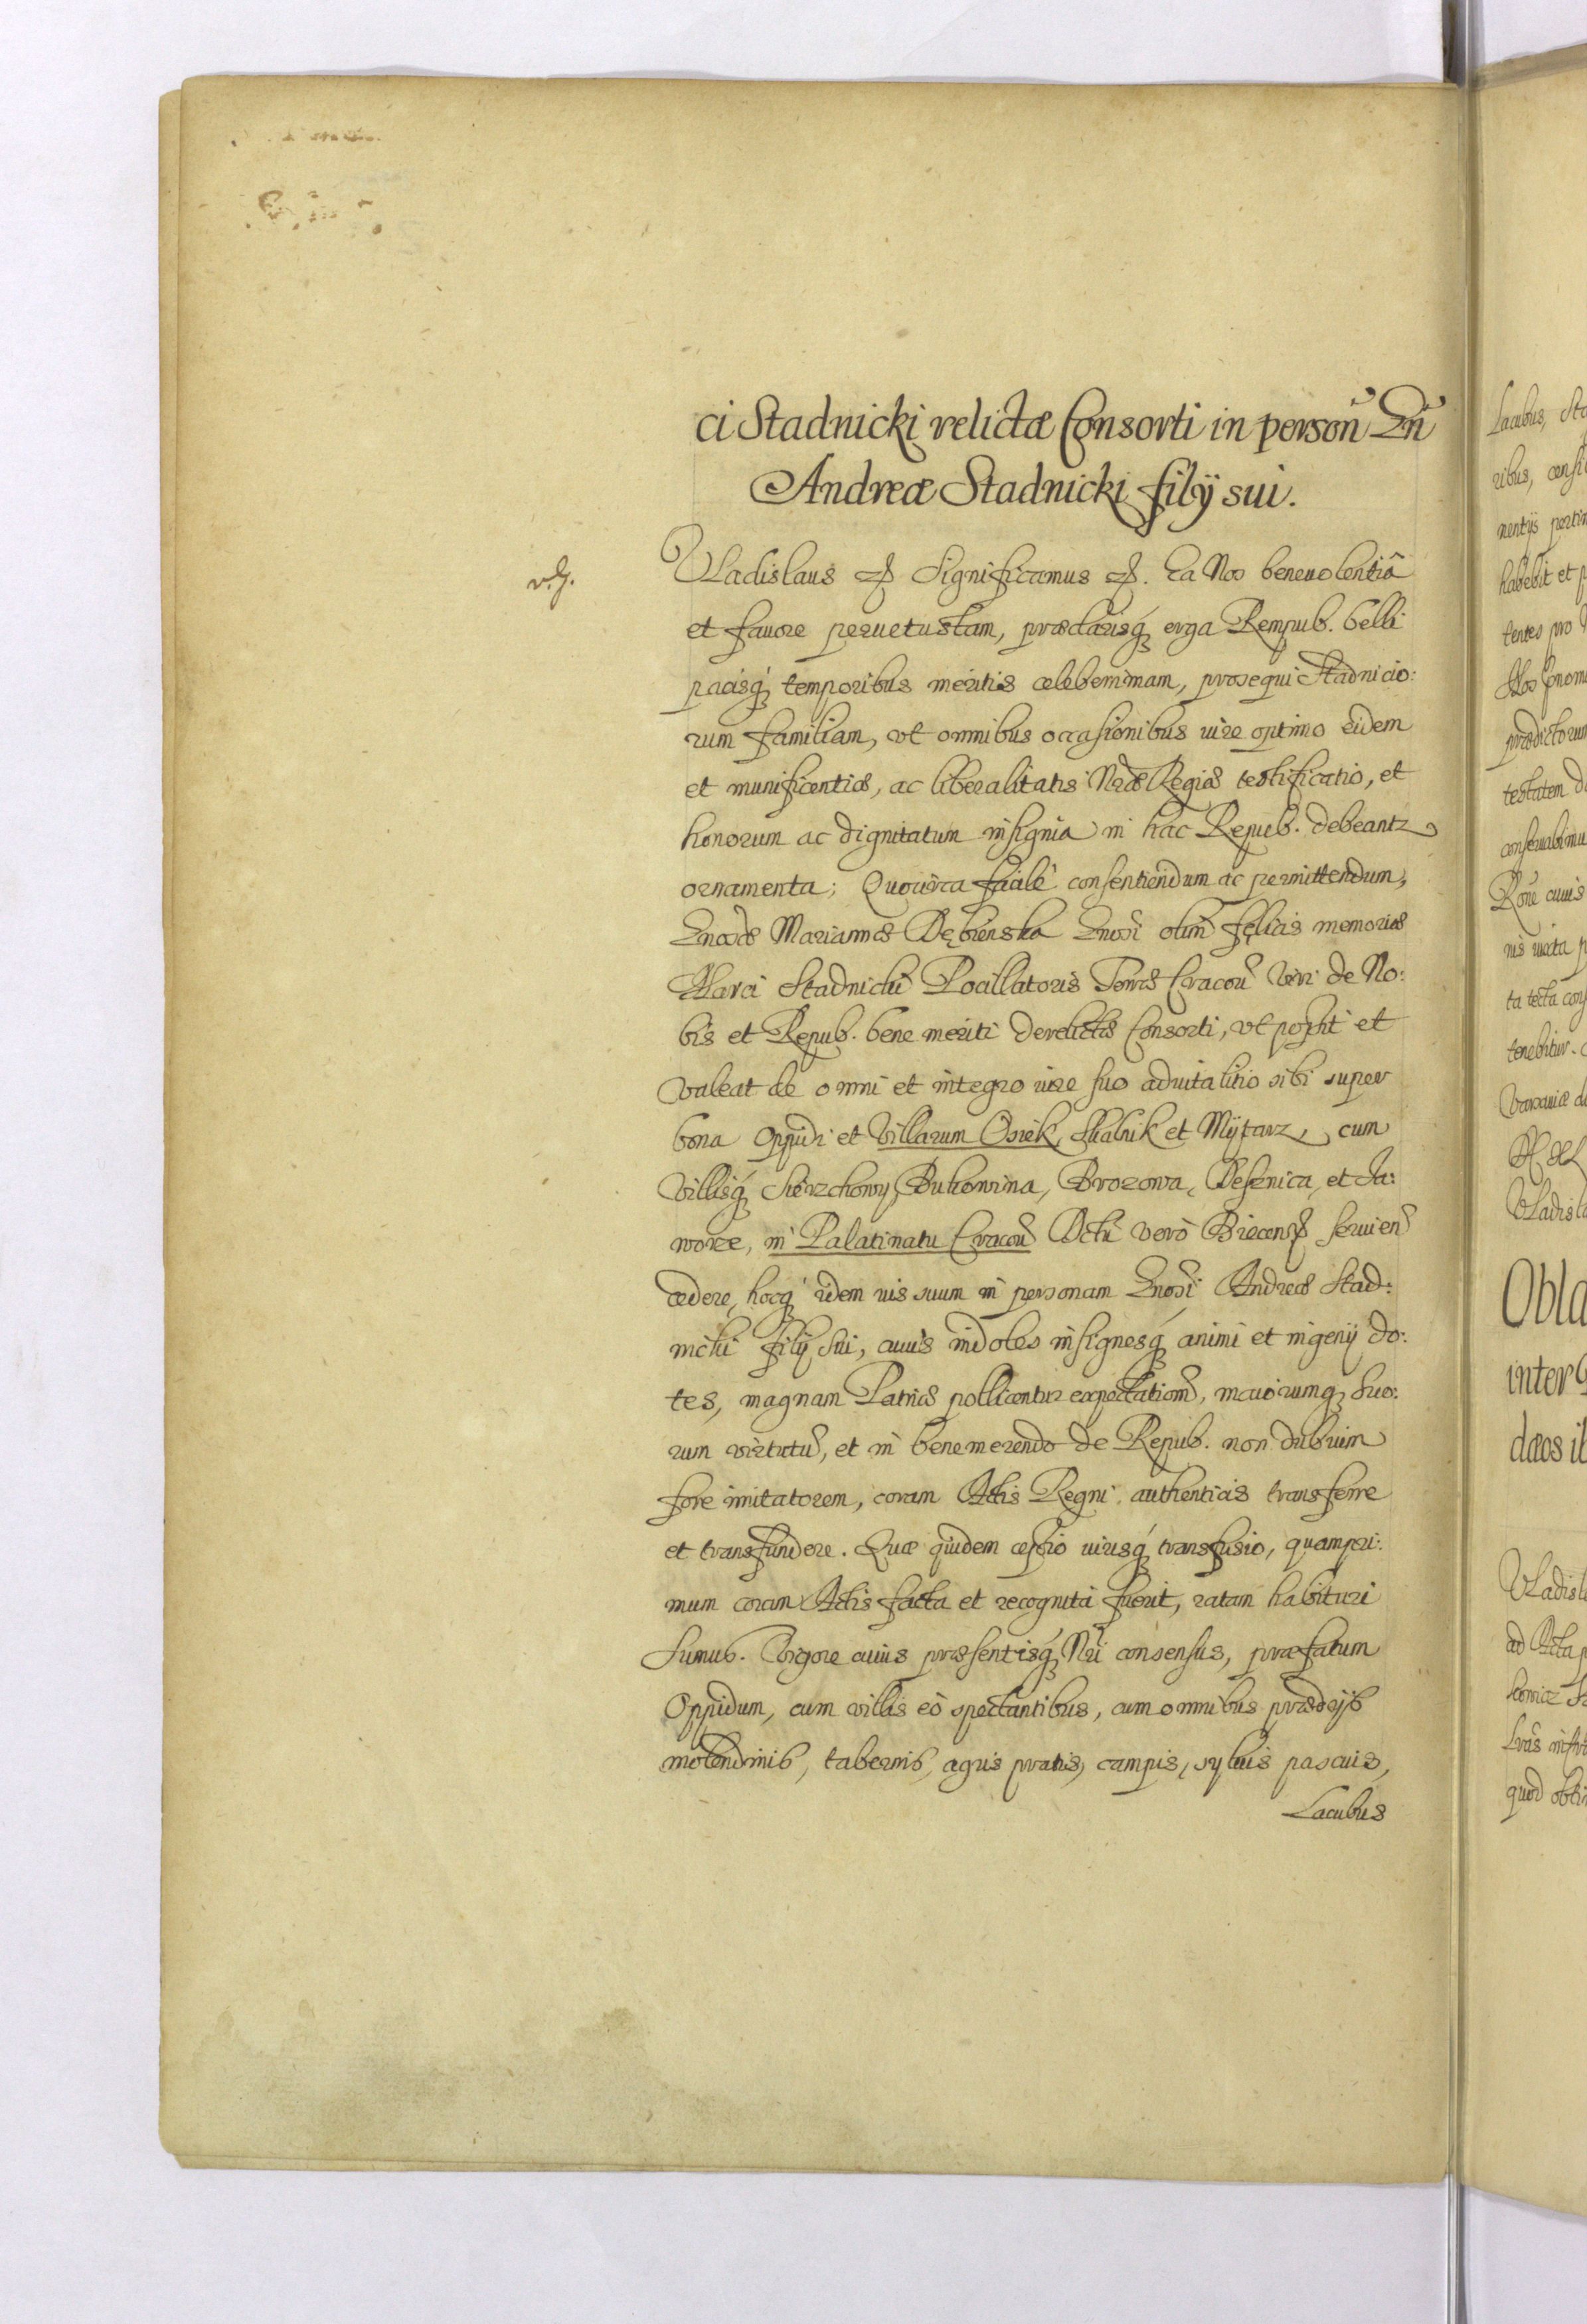 ci Stadnicki relictæ Consorti in person̄ Gn̄
Andreæ Stadnicki filÿ sui.
VLadislaus &. Significamus &. Ea Nos beneuolentiâ
et fauore peruetustam, præclarisq́ erga Rempub. belli
pacisq́ temporibus meritis celeberrimam, prosequi Stadnicio:
rum familiam, vt omnibus occasionibus iure optimo eidem
et munificentiæ, ac liberalitatis Nræ Regiæ testificatio, et
honorum ac dignitatum insignia in hac Repub. debeantr
ornamenta; Quocirca facilè consentiendum ac permittendum,
Gnosæ Mariannæ Dębienska Gnosi olim fęlicis memoriæ
Marci Stadnicki Pocillatoris Terræ Cracou̅ Viri de No:
bis et Repub. bene meriti derelictæ Consorti, vt possit et
valeat de omni et integro iure suo aduitalitio sibi super
bona Oppidi et Villarum Osiek, Skalnik et Mÿtarz, cum
Villisq́ Swierzchowy, Bukowina, Brozowa, Desznica, et Ja:
worze, in Palatinatu Cracou̅ Dctu̅ verò Biecensi seruien̅
cedere, hocq́ idem ius suum in personam Gnosi Andreæ Stad:
nicki filÿ sui, cuius indoles insignesq́ animi et ingenÿ do:
tes, magnam Patriæ pollicentur expectatione̅, maiorumq́ suo:
rum virtutu̅, et in benemerendo de Repub. non dubium
fore imitatorem, coram Actis Regni authenticis transferre
et transfundere. Quæ quidem cessio iurisq́ transfusio, quampri:
mum coram Actis facta et recognita fuerit, ratam habituri
sumus. Vigore cuius præsentisq́ Nri consensus, præfatum
Oppidum, cum villis eò spectantibus, cum omnibus prædÿs
molendinis, tabernis, agris pratis, campis, syluis pascuis,
Lacubus